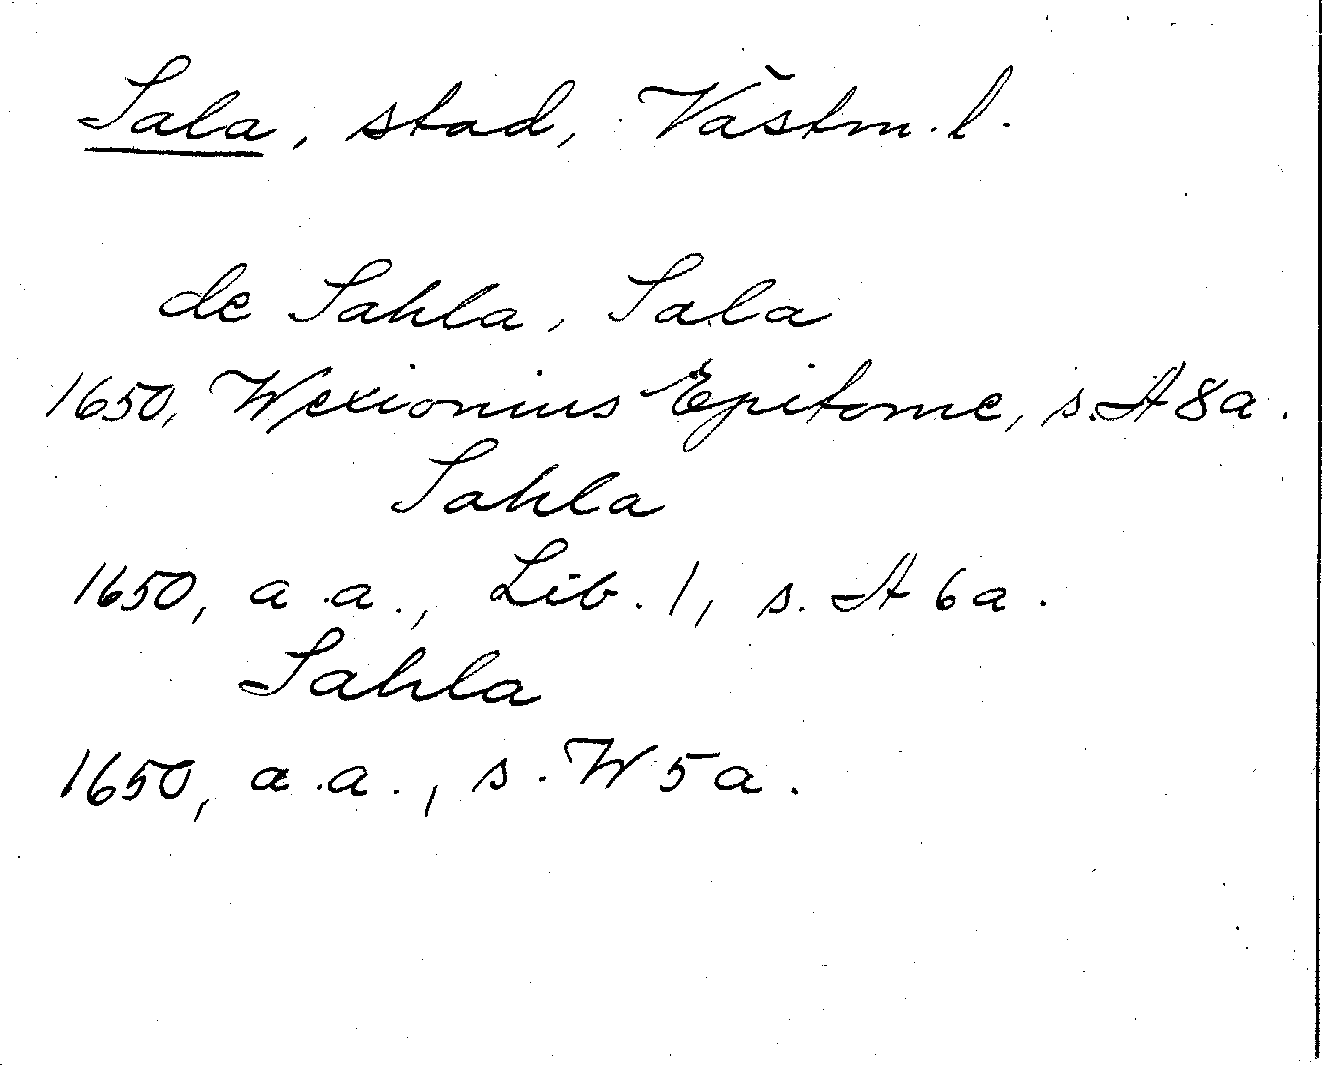 Sala, stad, Västm. l.
de Sahla, Sala
1650, Wexionius Epitome, s. A 8a.
Sahla
1650, a.a., Lib. 1, s. A 6a.
Sahla
1650, a.a., s. W 5a.